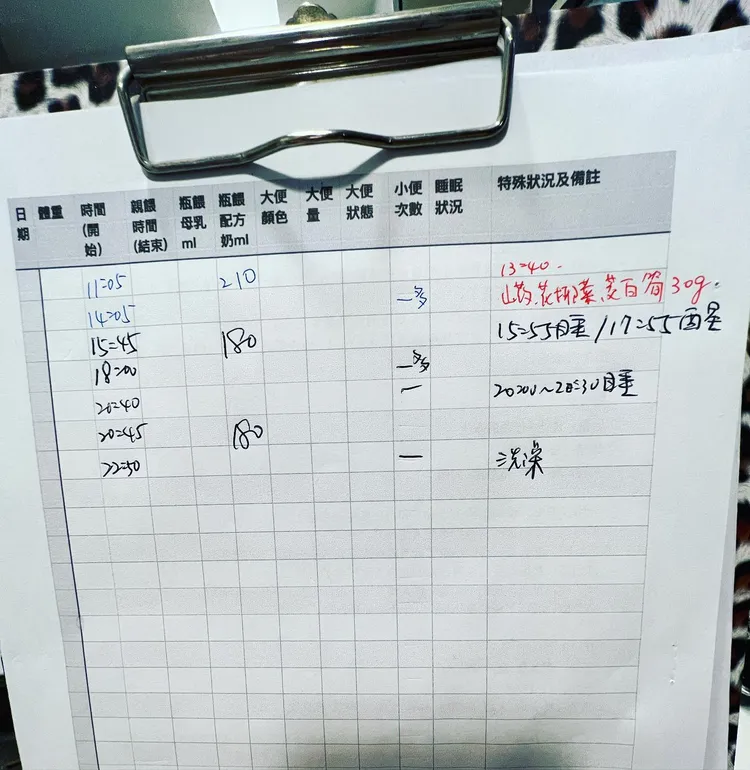 日期 體重 時間(開始) 親餵時間(結束) 瓶餵母乳ml 瓶餵配方奶ml 大便顏色 大便量 大便狀態 小便次數 睡眠狀況 特殊狀況及備註
11:05 210 13:40.
14:05 一多 山藥、花椰菜、茭白筍30g.
15:45 180 15:55目垂/17:55酉星
18:00 一多
20:40 一 目垂
20:45 180
22:50 一 洗澡